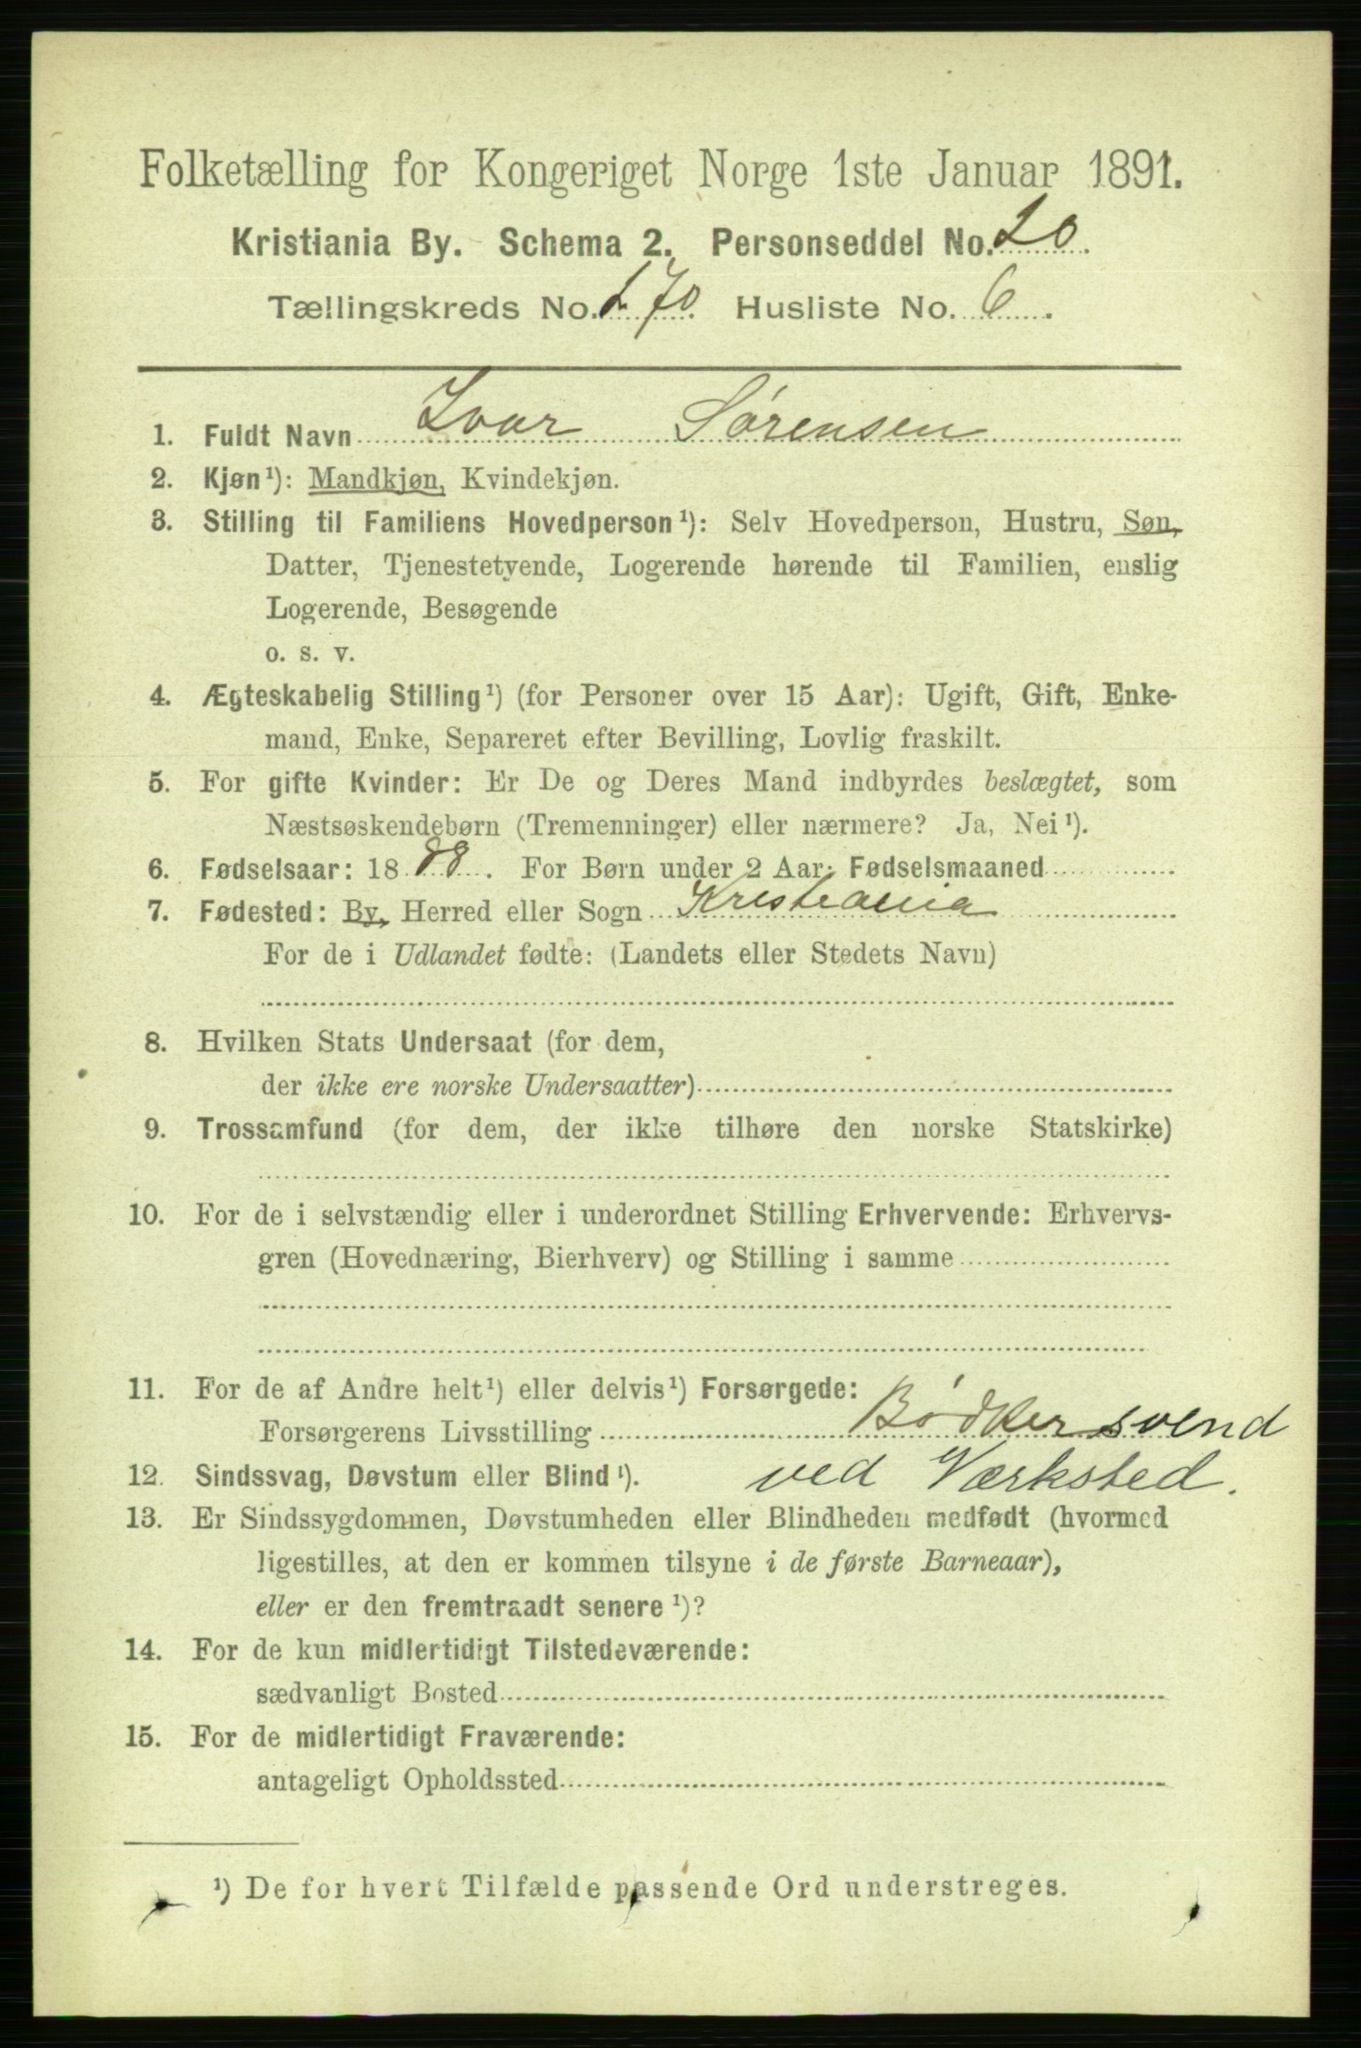 Folketælling for Kongeriget Norge 1ste Januar 1891.
Kristiania By. Schema 2. Personseddel No. 20.
Tællingskreds No. 170. Husliste No. 6.
1. Fuldt Navn Ivar Sørensen
2. Kjøn¹): Mandkjøn, Kvindekjøn.
3. Stilling til Familiens Hovedperson¹): Selv Hovedperson, Hustru, Søn,
Datter, Tjenestetyende, Logerende hørende til Familien, enslig
Logerende, Besøgende
o. s. v.
4. Ægteskabelig Stilling¹) (for Personer over 15 Aar): Ugift, Gift, Enke-
mand, Enke, Separeret efter Bevilling, Lovlig fraskilt.
5. For gifte Kvinder: Er De og Deres Mand indbyrdes beslægtet, som
Næstsøskendebørn (Tremenninger) eller nærmere? Ja, Nei¹).
6. Fødselsaar: 1888. For Børn under 2 Aar: Fødselsmaaned
7. Fødested: By, Herred eller Sogn Kristiania
For de i Udlandet fødte: (Landets eller Stedets Navn)
8. Hvilken Stats Undersaat (for dem,
der ikke ere norske Undersaatter)
9. Trossamfund (for dem, der ikke tilhøre den norske Statskirke)
10. For de i selvstændig eller i underordnet Stilling Erhvervende: Erhvervs-
gren (Hovednæring, Bierhverv) og Stilling i samme
11. For de af Andre helt¹) eller delvis¹) Forsørgede:
Forsørgerens Livsstilling Bødkersvend
12. Sindssvag, Døvstum eller Blind¹). ved Værksted.
13. Er Sindssygdommen, Døvstumheden eller Blindheden medfødt (hvormed
ligestilles, at den er kommen tilsyne i de første Barneaar),
eller er den fremtraadt senere¹)?
14. For de kun midlertidigt Tilstedeværende:
sædvanligt Bosted
15. For de midlertidigt Fraværende:
antageligt Opholdssted
¹) De for hvert Tilfælde passende Ord understreges.